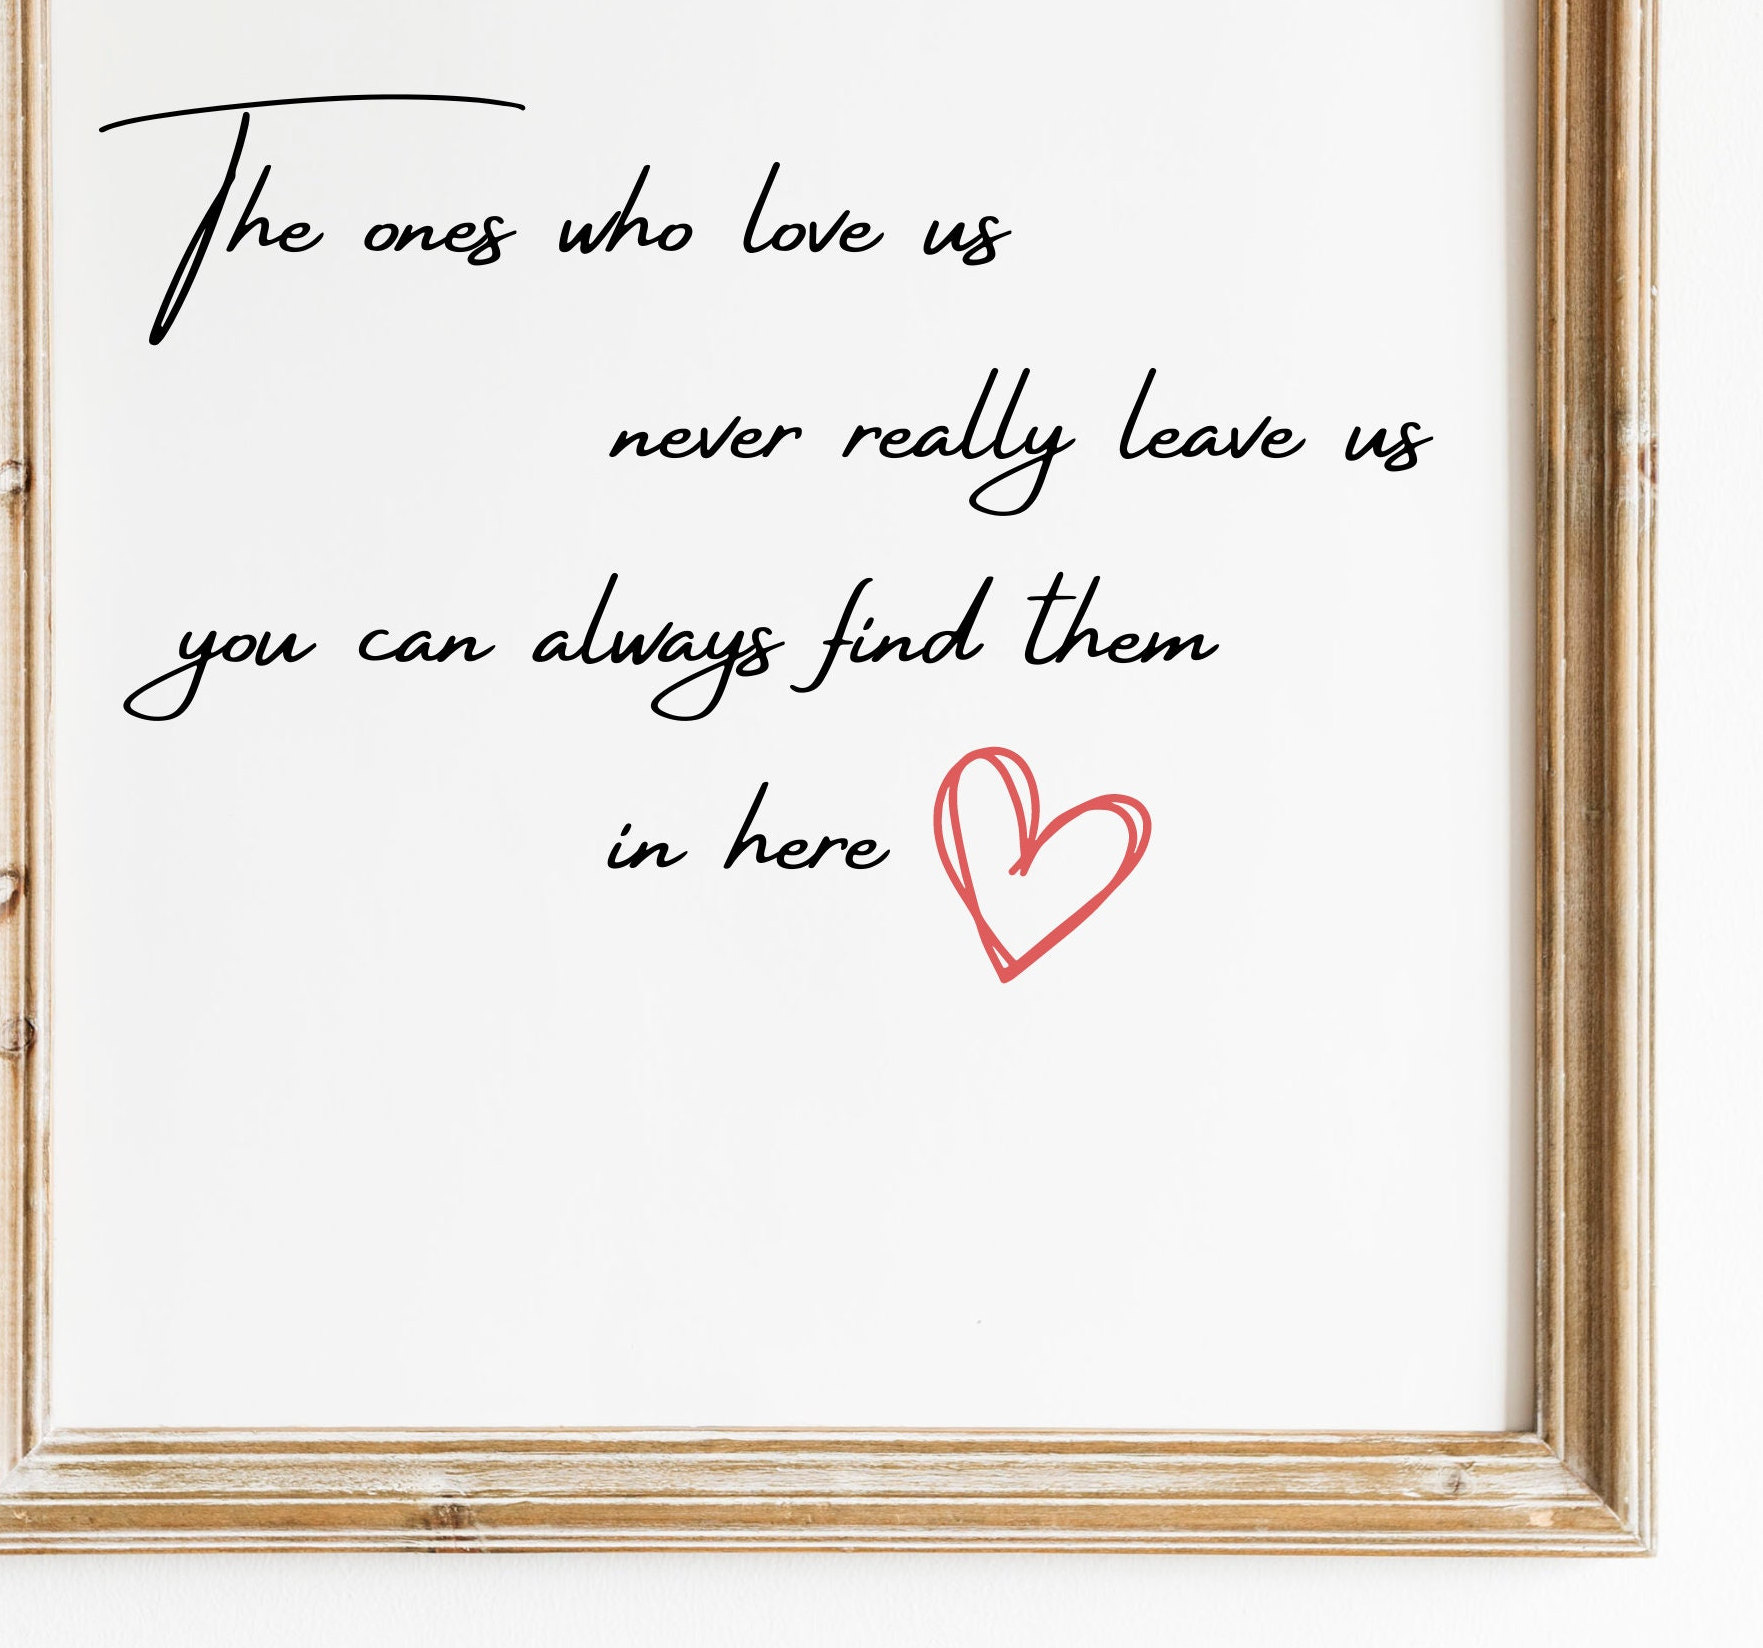 The ones who love us
never really leave us
you can always find them
in here